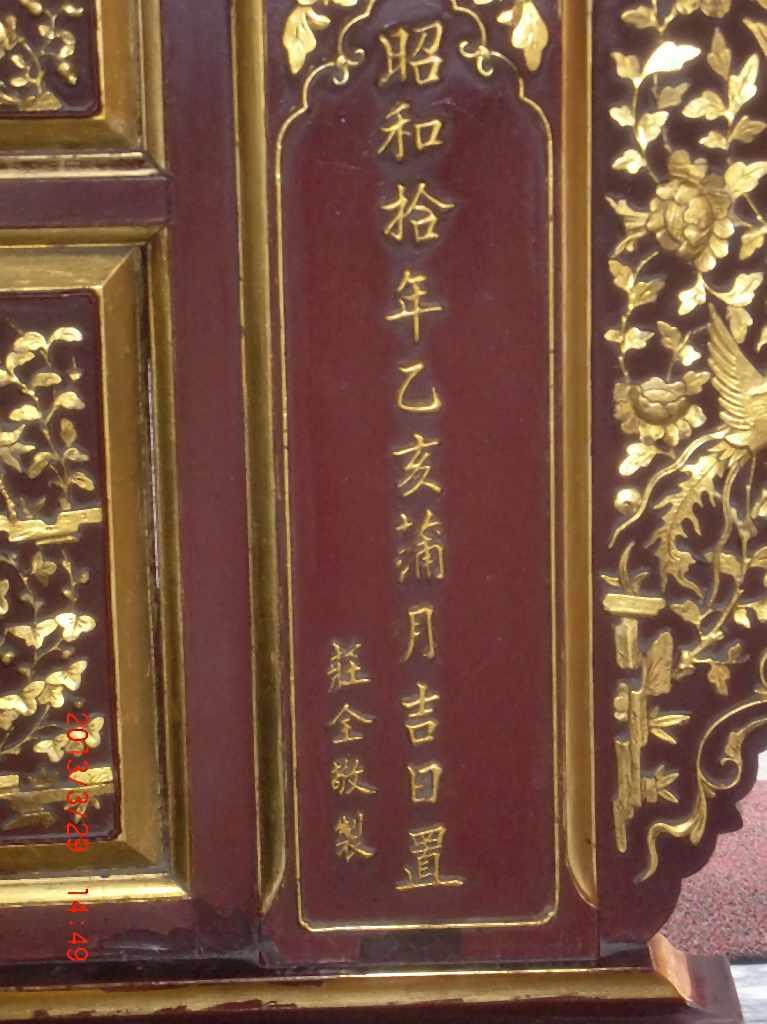 昭和拾年乙亥蒲月吉日置
莊全敬製
2013/3/29 14:49